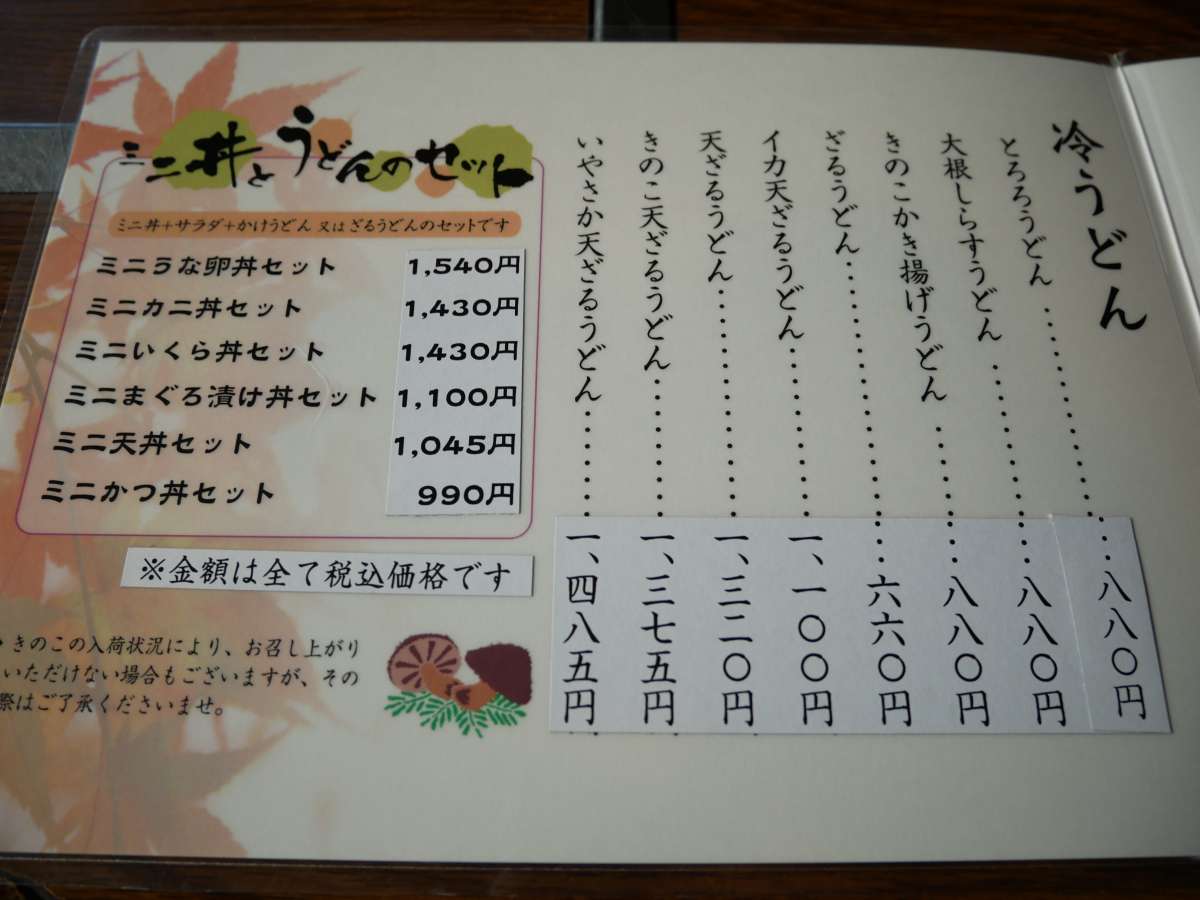 冷うどん
とろろうどん ・・・・・・・・・・・・ 八八〇円
大根しらすうどん ・・・・・・・・・ 八八〇円
きのこかき揚げうどん ・・・・・・ 八八〇円
ざるうどん ・・・・・・・・・・・・・ 六六〇円
イカ天ざるうどん ・・・・・・・・・ 一、一〇〇円
天ざるうどん ・・・・・・・・・・・・ 一、三二〇円
きのこ天ざるうどん ・・・・・・・ 一、三七五円
いやさか天ざるうどん ・・・・・・ 一、四八五円
ミニ丼とうどんのセット
ミニ丼+サラダ+かけうどん 又は ざるうどんのセットです
ミニうな卵丼セット 1,540円
ミニカニ丼セット 1,430円
ミニいくら丼セット 1,430円
ミニまぐろ漬け丼セット 1,100円
ミニ天丼セット 1,045円
ミニかつ丼セット 990円
※金額は全て税込価格です
きのこの入荷状況により、お召し上がり
いただけない場合もございますが、その
際はご了承くださいませ。